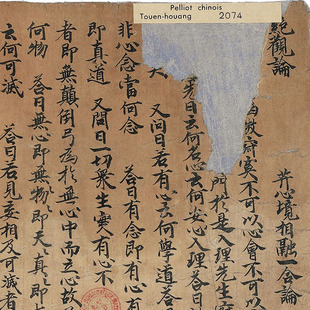 Pelliot chinois
Touen-houang 2074
絕觀論 心境相融一合論
寂寞不可以心會不可以
於是入理先生
曰云何名心云何安心入理答曰
天 又問曰若有心云何學道答
非心念當何念 答曰有念即有心有
即真道 又問曰一切衆生實有心不
者即無顛倒 為於無心中而立心故
何物 答曰無心即無物〻即天真〻即
云何可滅 答曰若見妄相及可滅者